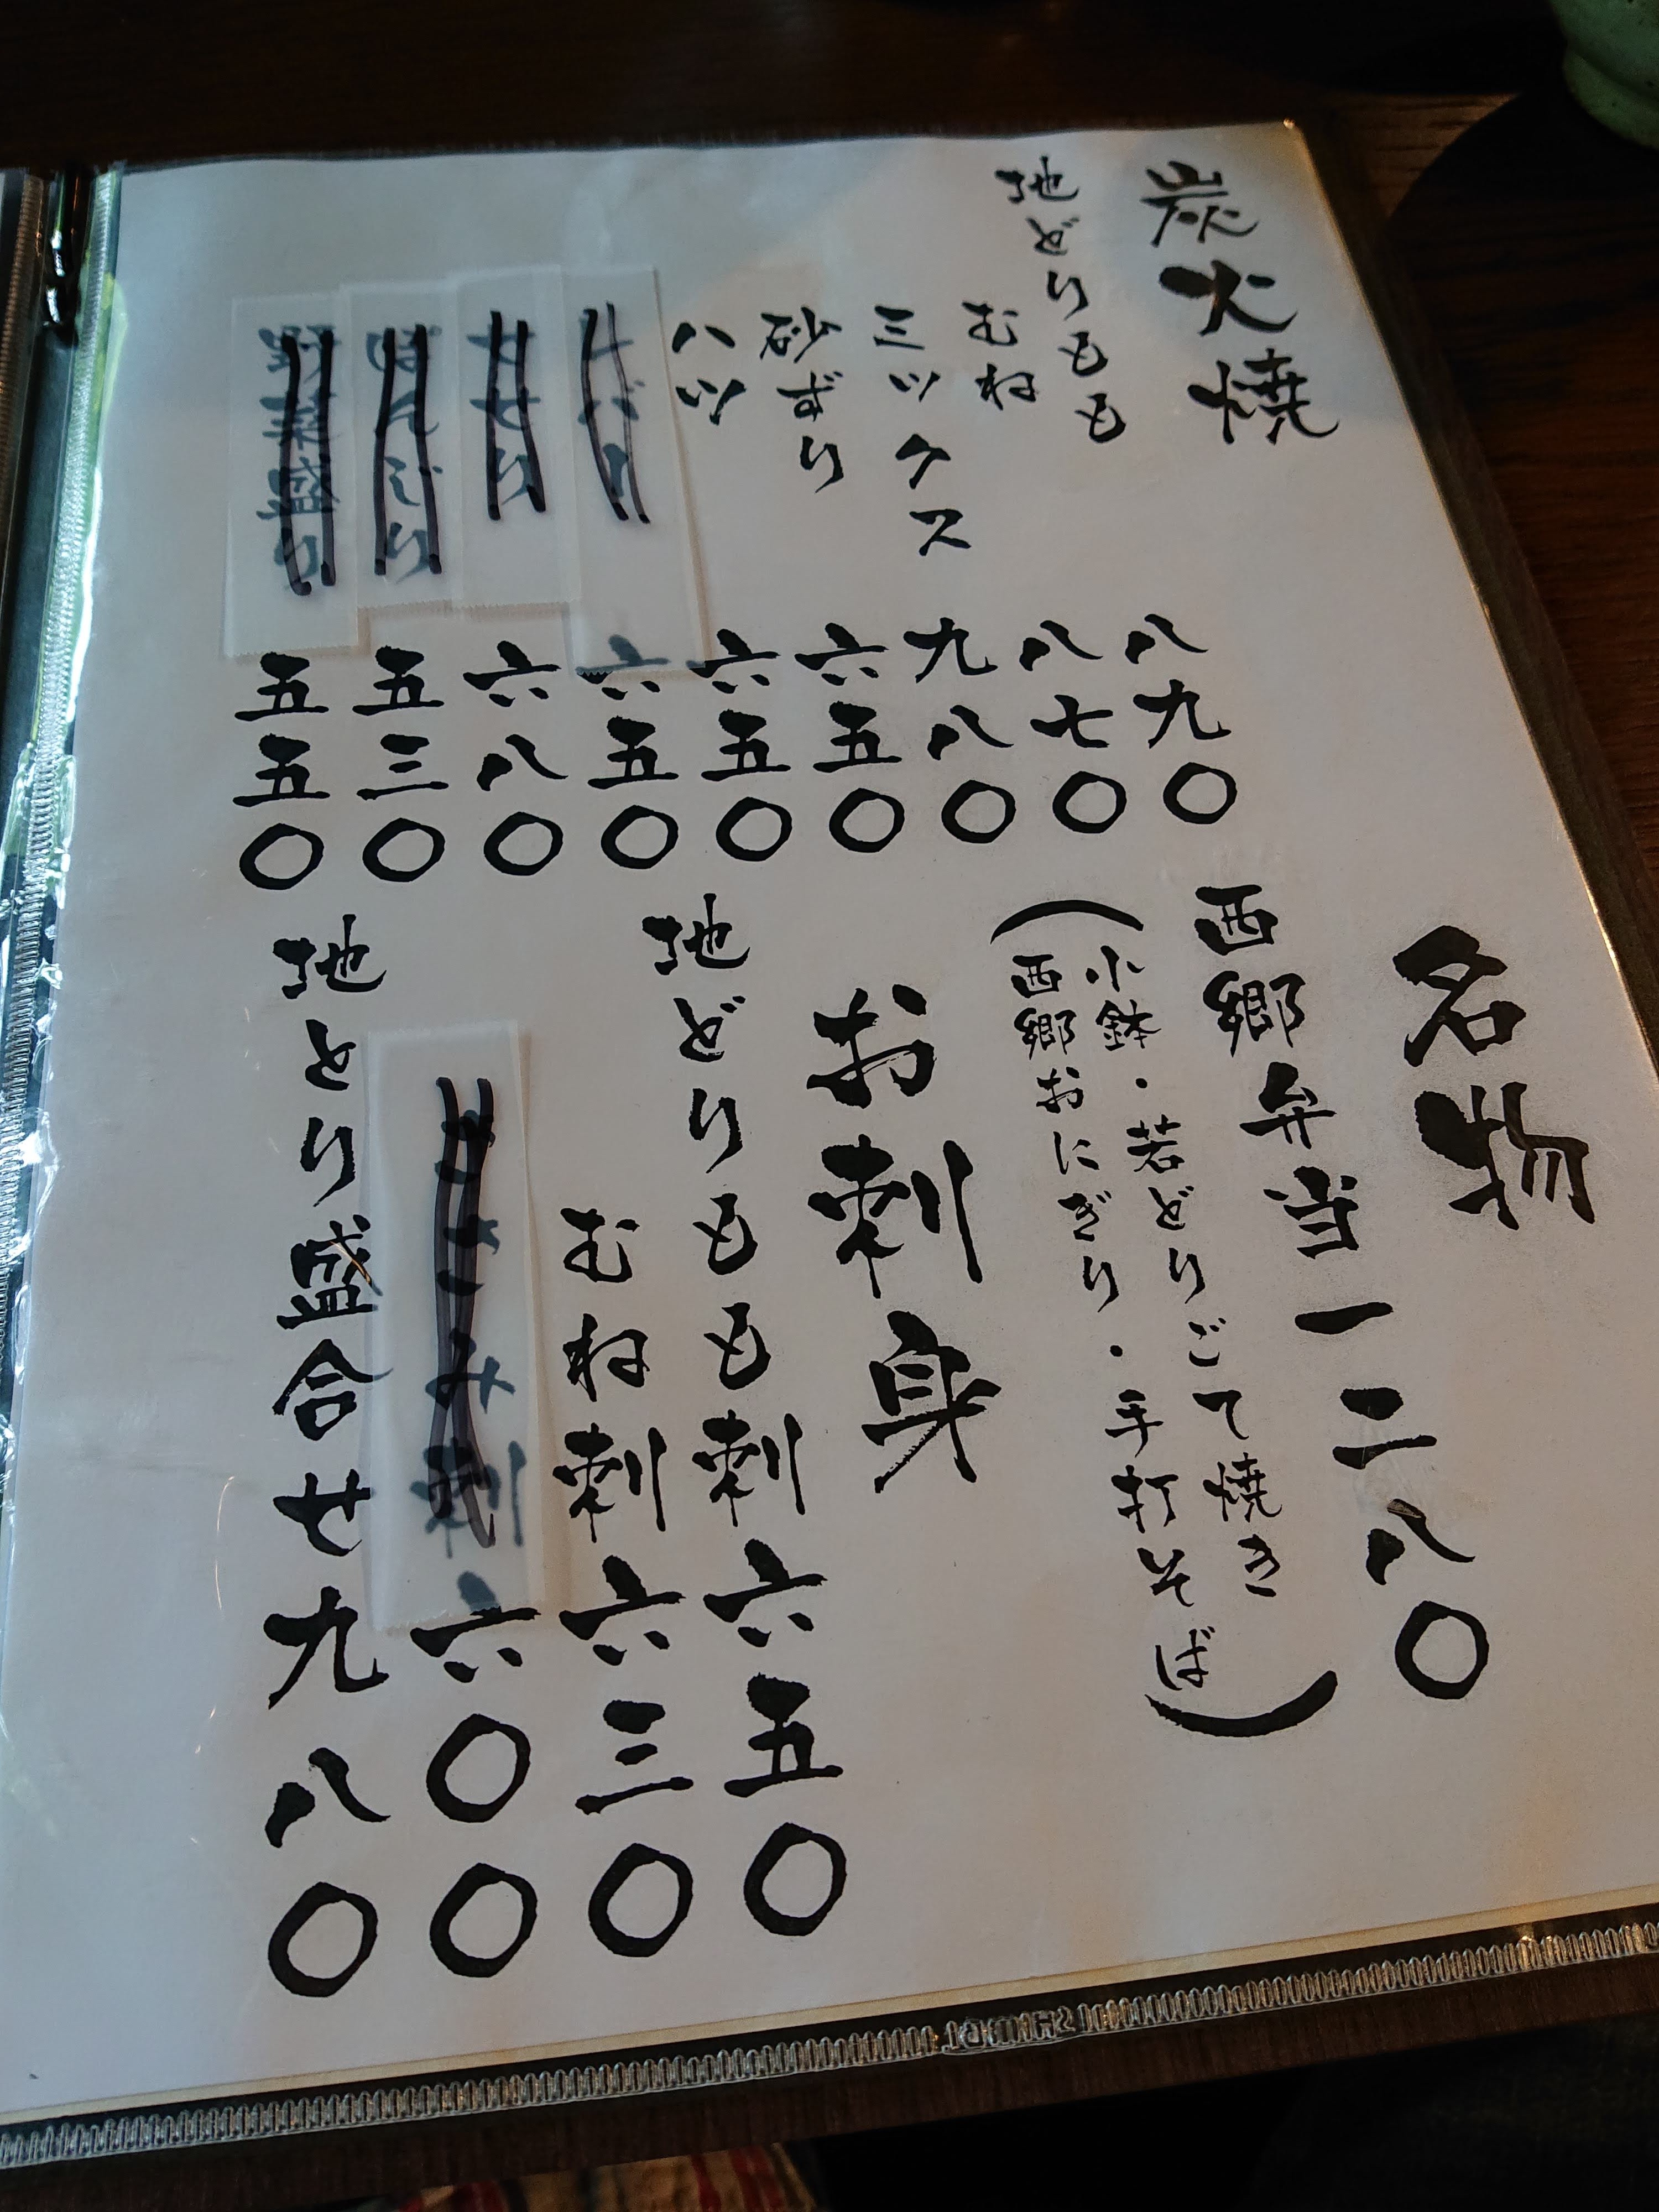 炭火焼
地どりもも 八九〇
むね 八七〇
ミックス 九八〇
砂ずり 六五〇
ハツ 六五〇
六五〇
せせり 六八〇
ぼんじり 五三〇
野菜盛り 五五〇
名物
西郷弁当 一二八〇
(小鉢・若どりごて焼き
西郷おにぎり・手打そば)
お刺身
地どりもも刺 六五〇
むね刺 六三〇
ささみ刺 六〇〇
地とり盛合せ 九八〇